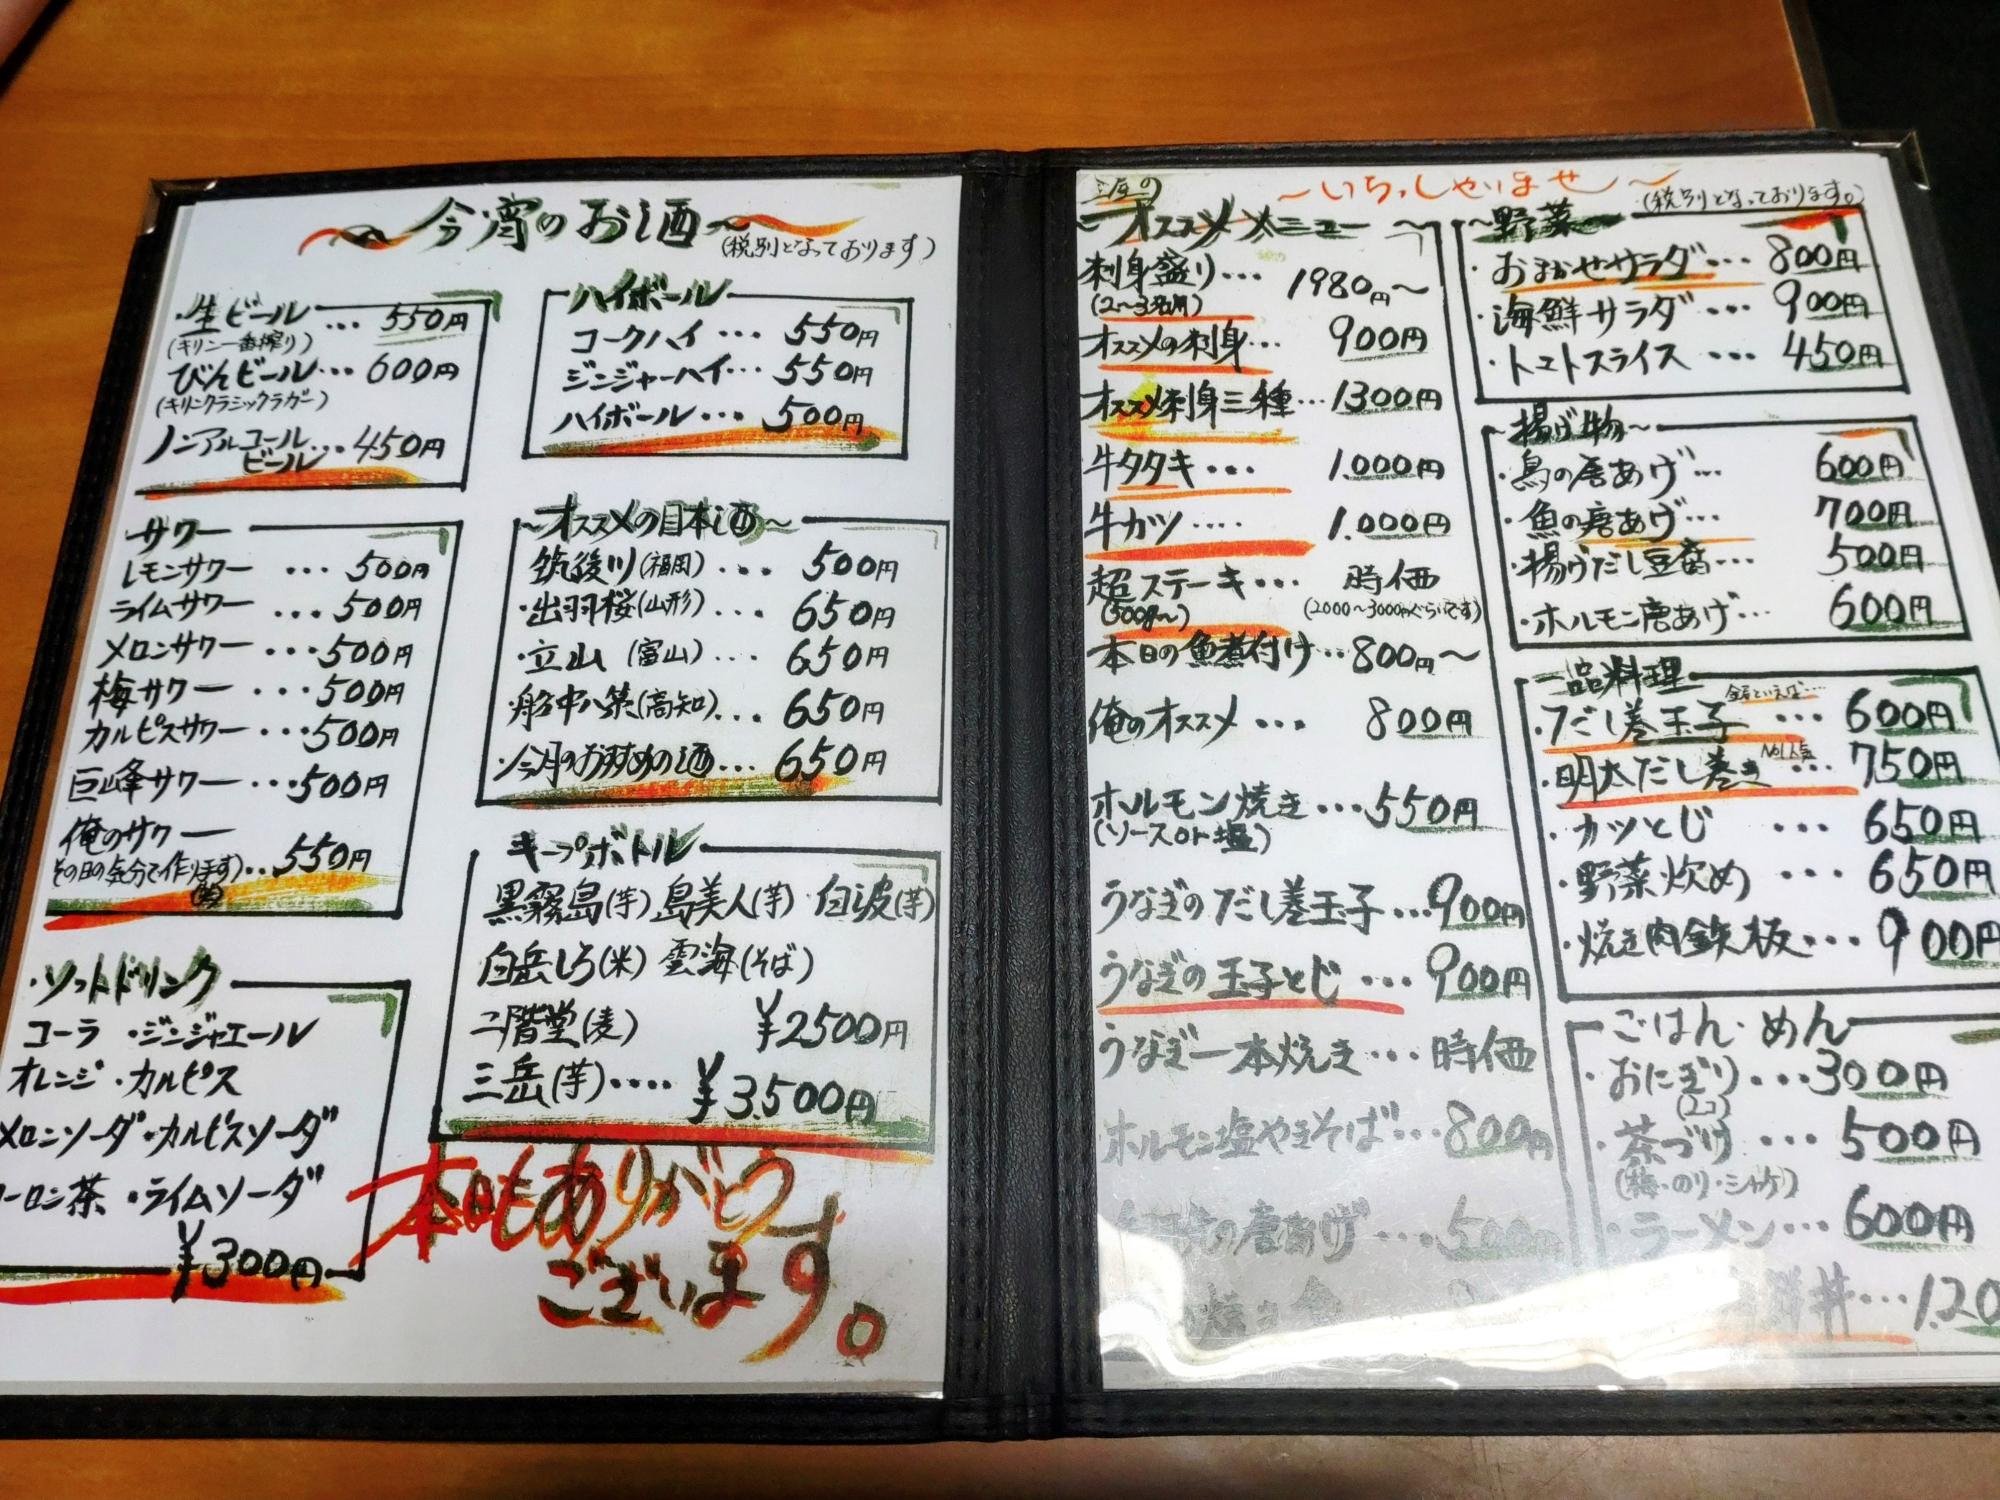 ～今宵のお酒～
(税別となっております)
・生ビール … 550円
(キリン一番搾り)
びんビール… 600円
(キリンクラシックラガー)
ノンアルコール
ビール …450円
サワー
レモンサワー … 500円
ライムサワー … 500円
メロンサワー … 500円
梅サワー … 500円
カルピスサワー … 500円
巨峰サワー … 500円
俺のサワー
(その日の気分で作ります)… 550円
(笑)
・ソフトドリンク
コーラ ・ジンジャエール
オレンジ・カルピス
メロンソーダ・カルピスソーダ
ーロン茶 ・ライムソーダ
¥300円
ハイボール
コークハイ … 550円
ジンジャーハイ… 550円
ハイボール … 500円
～オススメの日本酒～
筑後川(福岡) … 500円
・出羽桜(山形)… 650円
・立山 (富山) … 650円
船中八策(高知)… 650円
・今月のおすすめの酒… 650円
キープボトル
黒霧島(芋) 島美人(芋) 白波(芋)
白岳しろ(米) 雲海(そば)
二階堂(麦) ¥2500円
三岳(芋)‥‥ ¥3,500円
本日もありがとう
ございます。
～いらっしゃいませ～
(税別となっております。)
～オススメメニュー～
刺身盛り… 1980円～
(2～3名用)
オススメの刺身… 900円
オススメ刺身三種…1300円
牛タタキ … 1.000円
牛カツ ‥‥ 1.000円
超ステーキ… 時価
(500g～) (2000～3000円ぐらいです)
本日の魚煮付け…800円～
俺のオススメ … 800円
ホルモン焼き …550円
(ソースor塩)
うなぎのだし巻玉子 …900円
うなぎの玉子とじ …900円
うなぎ一本焼き … 時価
ホルモン塩やきそば…800円
の唐あげ …500円
～野菜～
・おまかせサラダ… 800円
・海鮮サラダ … 900円
・トマトスライス … 450円
～揚げ物～
・鳥の唐あげ… 600円
・魚の唐あげ… 700円
・揚げだし豆腐… 500円
・ホルモン唐あげ… 600円
一品料理
・だし巻玉子 … 600円
No1人気
・明太だし巻き … 750円
・カツとじ … 650円
・野菜炊め … 650円
・焼き肉鉄板… 900円
ごはん・めん
・おにぎり…300円
(2コ)
・茶づけ … 500円
(梅・のり・シャケ)
・ラーメン… 600円
鮮丼…1.20